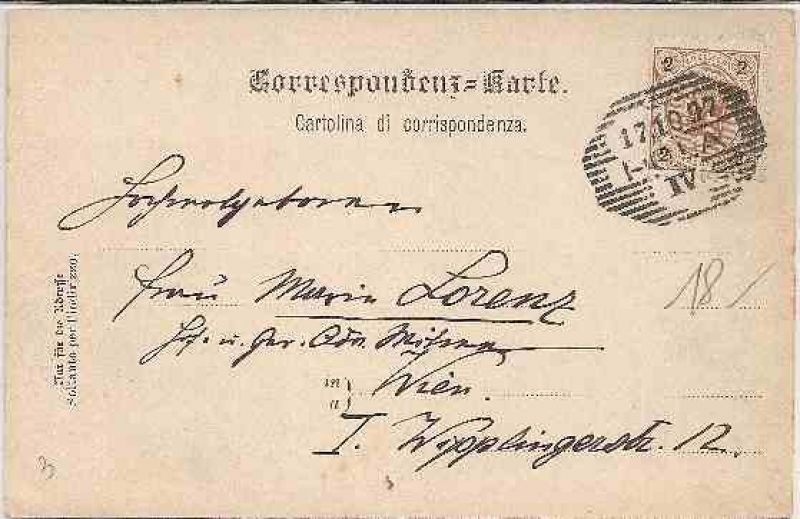 Correspondenz-Karte.
Cartolina di corrispondenza.
2 2
17.10.97
IV
2
Hochwolgeboren
Frau Marie Lorenz
Hof- u. Ger. Adv. Witwe
in
a } Wien.
I. Wipplingerstr. 12.
Nur für die Adresse
Soltanto per l'indirizzo.
18/
3